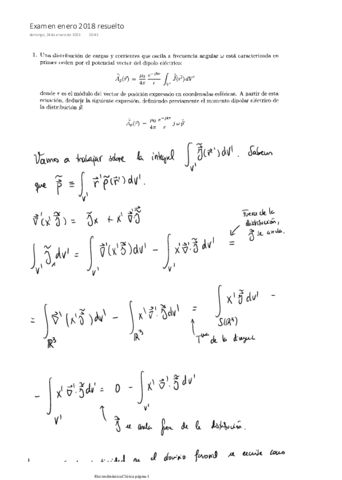 Examen enero 2018 resuelto
1. Una distribución de cargas y corrientes que oscila a frecuencia angular ω está caracterizada en
primer orden por el potencial vector del dipolo eléctrico:
Ã₀(r⃗) = μ₀/4π e^{-jkr}/r ∫_{V'} J̃(r⃗')dV'
donde r es el módulo del vector de posición expresado en coordenadas esféricas. A partir de esta
ecuación, deducir la siguiente expresión, definiendo previamente el momento dipolar eléctrico de
la distribución p̃:
Ã₀(r⃗) = μ₀/4π e^{-jkr}/r jω p̃
Vamos a trabajar sobre la integral ∫_{V'} J̃(r⃗')dV'. Sabemos
que p̃ ≡ ∫_{V'} r⃗' ρ̃(r⃗')dV'.
∇⃗'(x' J̃) = J̃x + x' ∇⃗'J̃
Fuera de la
distribución,
J̃ se anula.
∫_{V'} J̃x dV' = ∫_{V'} ∇⃗'(x' J̃)dV' − ∫_{V'} x' ∇⃗'·J̃ dV' =
= ∫_{R³} ∇⃗'(x' J̃)dV' − ∫_{R³} x' ∇⃗'·J̃dV' = ∫_{S(R³)} x' J̃ dV' −
Tma de la divergencia
− ∫_{V'} x' ∇⃗'·J̃dV' = 0 − ∫_{V'} x' ∇⃗'·J̃dV'
J̃ se anula fuera de la distribución.
en el dominio fasorial se escribe como
Electrodinámica Clásica página 1